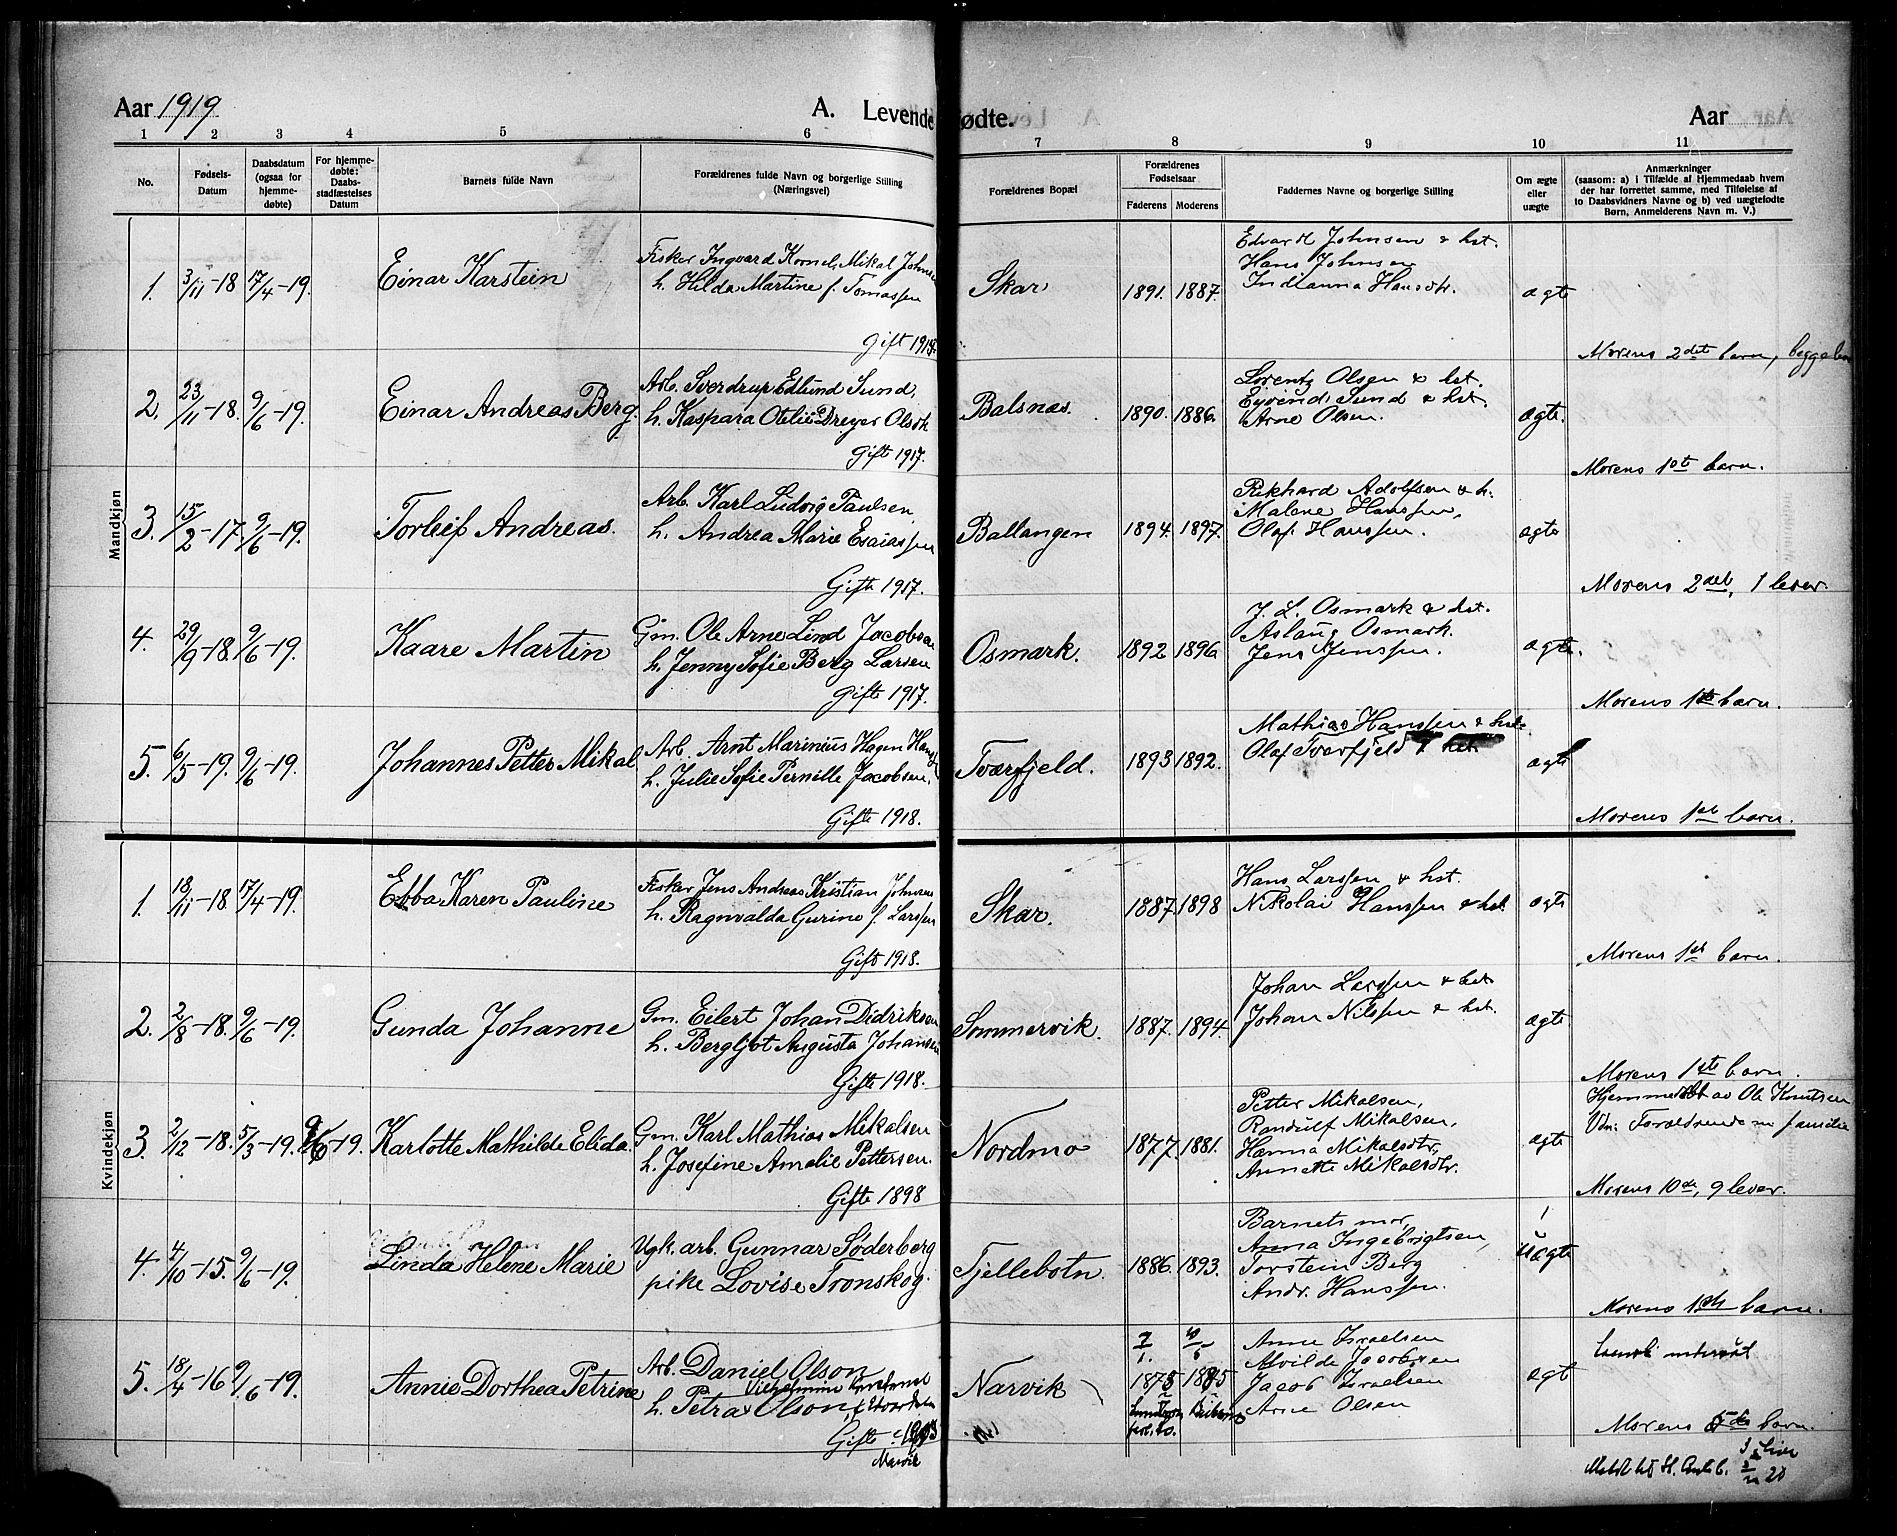 Aar 1919 A. Levende
1 2 3 4 5 6
No. Fødsels-Datum Daabsdatum (ogsaa for hjemme-døbte) For hjemme-døbte: Daabs-stadfæstelses Datum Barnets fulde Navn Forældrenes fulde Navn og borgerlige Stilling (Næringsvei)
Mandkjøn
1. 3/11-18 17/4-19. Einar Karstein Fisker Ingvard Kornel. Mikal Johnsen
h. Hilda Martine f. Tomassen
gift 1918.
2. 23/11-18. 9/6-19. Einar Andreas Berg. Arb. Sverdrup Edlund Sund,
h. Kaspara Otelie Dreyer Olsdtr
gift 1917.
3. 15/2-17. 9/6-19. Torleif Andreas. Arb. Karl Ludvig Paulsen,
h. Andrea Marie Esaiassen
Gifte 1917.
4. 29/9-18. 9/6-19. Kaare Martin Gm. Ole Arne Lind Jacobsen
h. Jenny Sofie Berg Larsen
gifte 1917.
5. 6/5-19. 9/6-19. Johannes Petter Mikal Arb. Arnt Marinius Hagen
h. Julie Sofie Pernille Jacobsen.
Gifte 1918.
Kvindekjøn
1. 18/11-18 17/4-19. Ebba Karen Pauline Fisker Jens Andreas Kristian Johnsen
h. Ragnvalda Gurine f. Larssen
Gift 1918.
2. 2/8-18. 9/6-19. Gunda Johanne Gm. Eilert Johan Didriksen
h. Bergljot Augusta Johansen
Gifte 1918.
3. 2/12-18. 5/3-19. 9/6-19. Karlotte Mathilde Elida. Gm. Karl Mathias Mikalsen
h. Josefine Amalie Pettersen.
Gifte 1898
4. 4/10-15. 9/6-19. Linda Helene Marie Ugk. arb. Gunnar Söderberg
pike Lovise Tronskog.
5. 18/4-16 9/6-19. Annie Dorthea Petrine Arb. Daniel Olson
Vilhelmine
h. Petra Olson,
Gifte
Narvik
ødte. Aar
7 8 9 10 11
Forældrenes Bopæl Forældrenes Fødselsaar Faderens Moderens Faddernes Navne og borgerlige Stilling Om ægte eller uægte Anmærkninger
(saasom: a) i Tilfælde af Hjemmedaab hvem
der har forrettet samme, med Tilføielse af
to Daabsvidners Navne og b) ved uægtefødte
Børn, Anmelderens Navn m. V.)
Edvard Johnsen & hst.
Hans Johnsen
Skar 1891. 1887. Indianna Hansdtr. ægte
Morens 2det barn, begge
Lorentz Olsen & hst.
Eyvind Sund & hst.
Balsnæs. 1890. 1886. Arne Olsen. ægte.
Morens 1ste barn.
Rikhard Adolfsen & h.
Malene Hanssen,
Ballangen 1894. 1897. Olaf Hanssen. ægte
Morens 2det, 1 lever.
J. L. Osmark & hst.
Aslaug Osmark.
Osmark. 1892 1896 Jens Jenssen. ægte.
Morens 1ste barn.
Mathias Hanssen & hst.
Tværfjeld. 1893 1892. Olaf Tværfjeld ægte
Morens 1ste barn.
Hans Larssen & hst.
Skar. 1887. 1898 Nikolai Hanssen & hst ægte
Morens 1ste barn.
Johan Larssen & hst
Sommervik. 1887. 1894. Johan Nilssen & hst. ægte
Morens 1ste barn.
Petter Mikalsen, Hjemmedøbt av Ole Knutsen
Randulf Mikalsen, Vdn: Forældrende m familie
Nordmo 1877. 1881. Hanna Mikalsdtr, ægte
Annette Mikalsdtr.
Morens 10de, 9 lever.
Barnets mor,
Anna Ingebrigtsen,
Fjellebotn. 1886. 1893. Torstein Berg uægte
Andr. Hanssen.
Morens 1ste barn.
Anne Israelsen
Alvilde Jacobsen
Narvik 1875 1885 Jacob Israelsen ægt
Arne Olsen
Morens 5de barn.